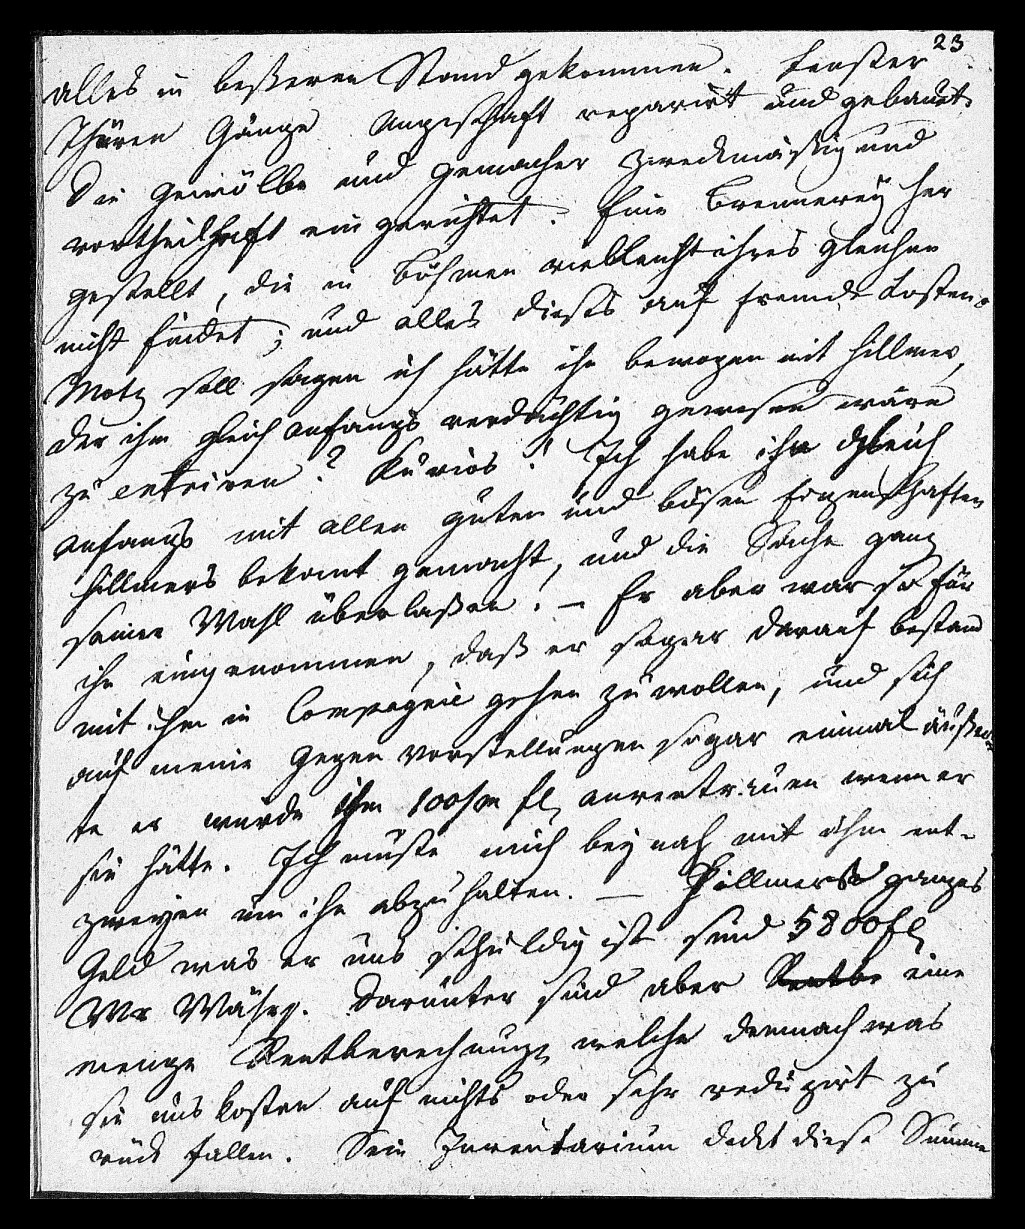 23
alles in beßeren Stand gekommen. Fenster
Thüren Gänge Angeschaft reparirt und gebaut.
Die Gewölbe und Gemacher zweckmäßig und
vortheilhaft eingerichtet. Eine Brennerey her
gestellt, die in Böhmen vielleicht ihres gleichen
nicht findet; und alles dieses auf fremde Kosten.
Motz soll sagen ich hätte ihn bewogen mit Hillmer,
der ihm gleich Anfangs verdächtig gewesen wäre
zu entriren? Kurios! Ich habe ihn gleich
Anfangs mit allen guten und bösen Eigenschaften
Hillmers bekant gemacht, und die Sache ganz
seiner Wahl überlaßen. – Er aber war so für
ihn eingenommen, daß er sogar darauf bestand
mit ihm in Compagnie gehen zu wollen, und sich
auf meine Gegenvorstellungen sogar einmal äußer
te er würde ihm 100/m fl anvertrauen wenn er
sie hätte. Ich muste mich bey nah mit ihm ent-
zweyen um ihn abzuhalten. — Hillmers ganzes
Geld was er uns schuldig ist sind 5800 fl
Wr Währg. Darunter sind aber eine
menge Rentberechnung welche demnach was
sie uns kosten auf nichts oder sehr reduzirt zu
rück fallen. Sein Inventarium deckt diese Summe